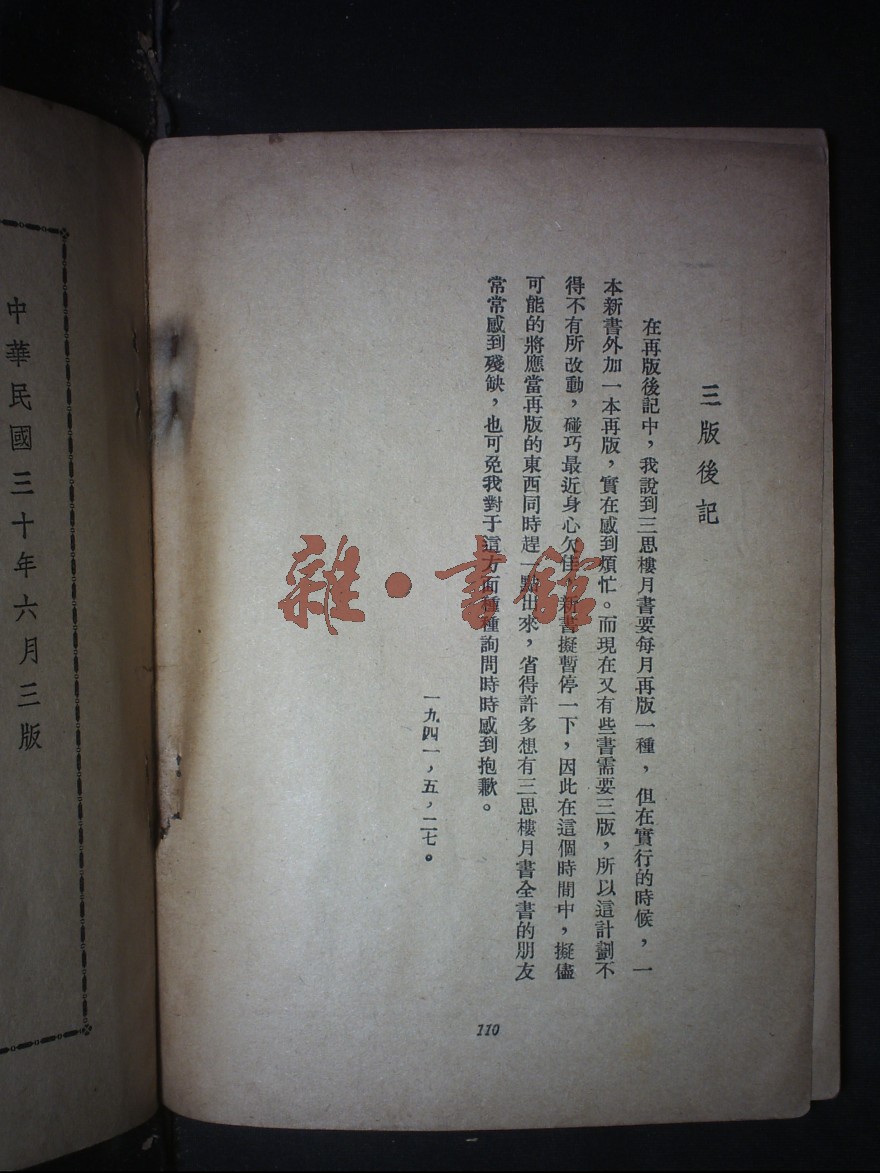 三版後記
在再版後記中，我說到三思樓月書要每月再版一種，但在實行的時候，一
本新書外加一本再版，實在感到煩忙。而現在又有些書需要三版，所以這計劃不
得不有所改動，碰巧最近身心欠佳，新書擬暫停一下，因此在這個時間中，擬儘
可能的將應當再版的東西同時趕一點出來，省得許多想有三思樓月書全書的朋友
常常感到殘缺，也可免我對于這方面種種詢問時時感到抱歉。
一九四一，五，二七。
110
中華民國三十年六月三版
雜·書館